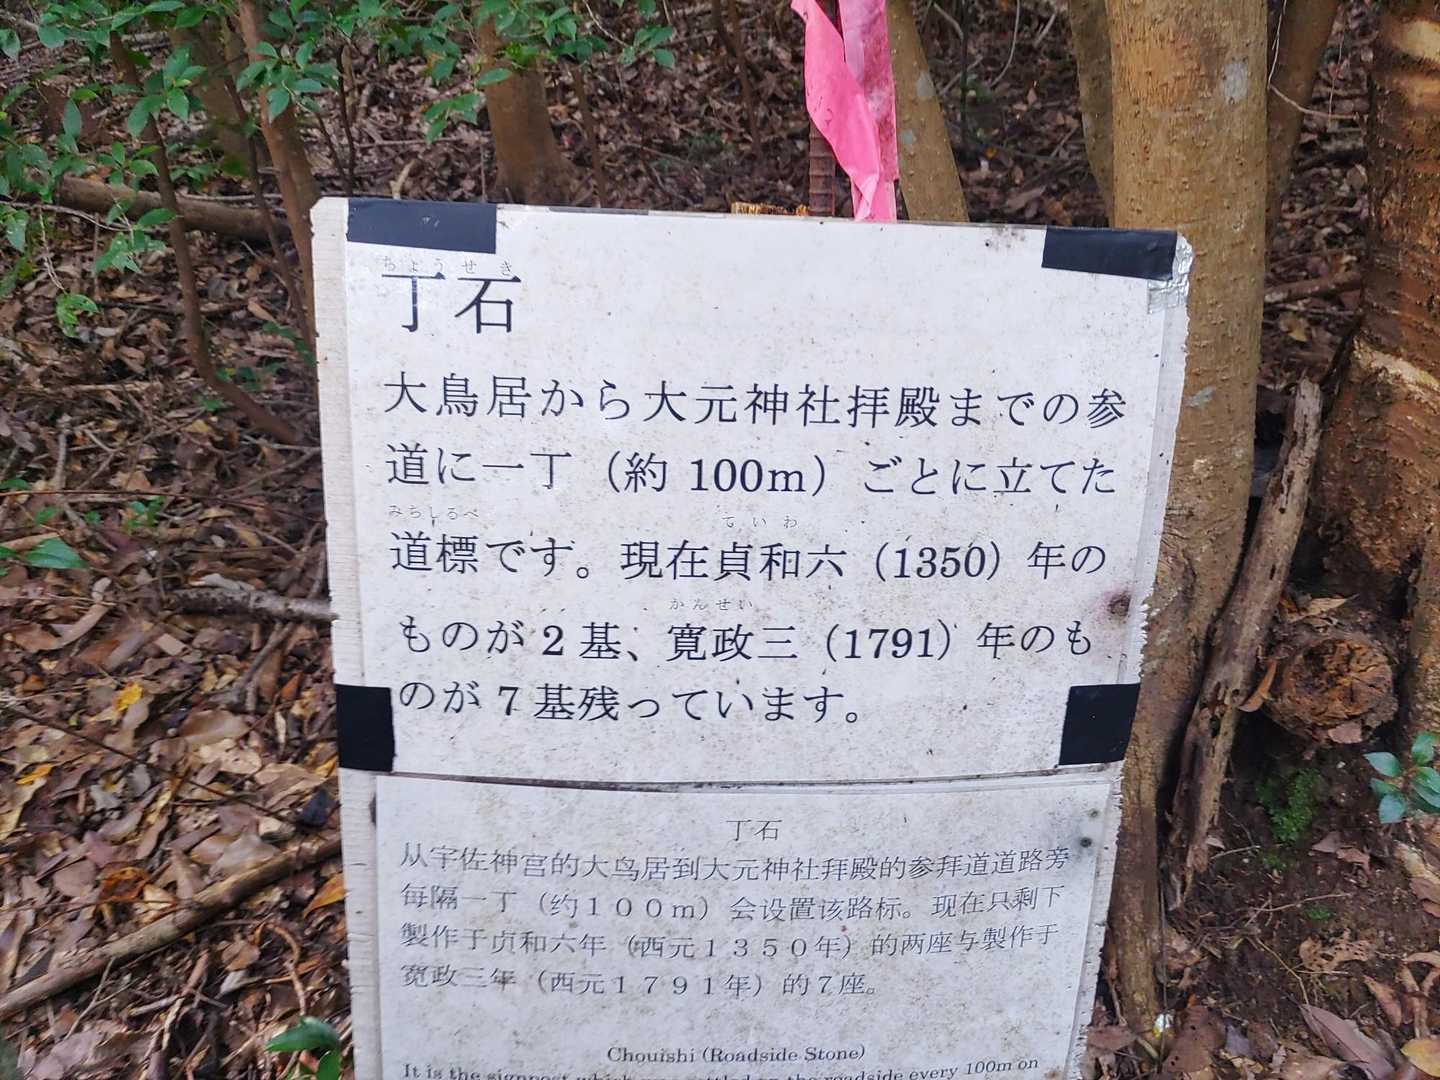 ちょうせき
丁石
大鳥居から大元神社拝殿までの参
道に一丁（約 100m）ごとに立てた
みちしるべ ていわ
道標です。現在貞和六（1350）年の
かんせい
ものが 2 基、寛政三（1791）年のも
のが 7 基残っています。
丁石
从宇佐神宫的大鸟居到大元神社拜殿的参拜道道路旁
每隔一丁（约１００ｍ）会设置该路标。现在只剩下
製作于贞和六年（西元１３５０年）的两座与製作于
寛政三年（西元１７９１年）的７座。
Chouishi (Roadside Stone)
It is the signpost which was settled on the roadside every 100m on